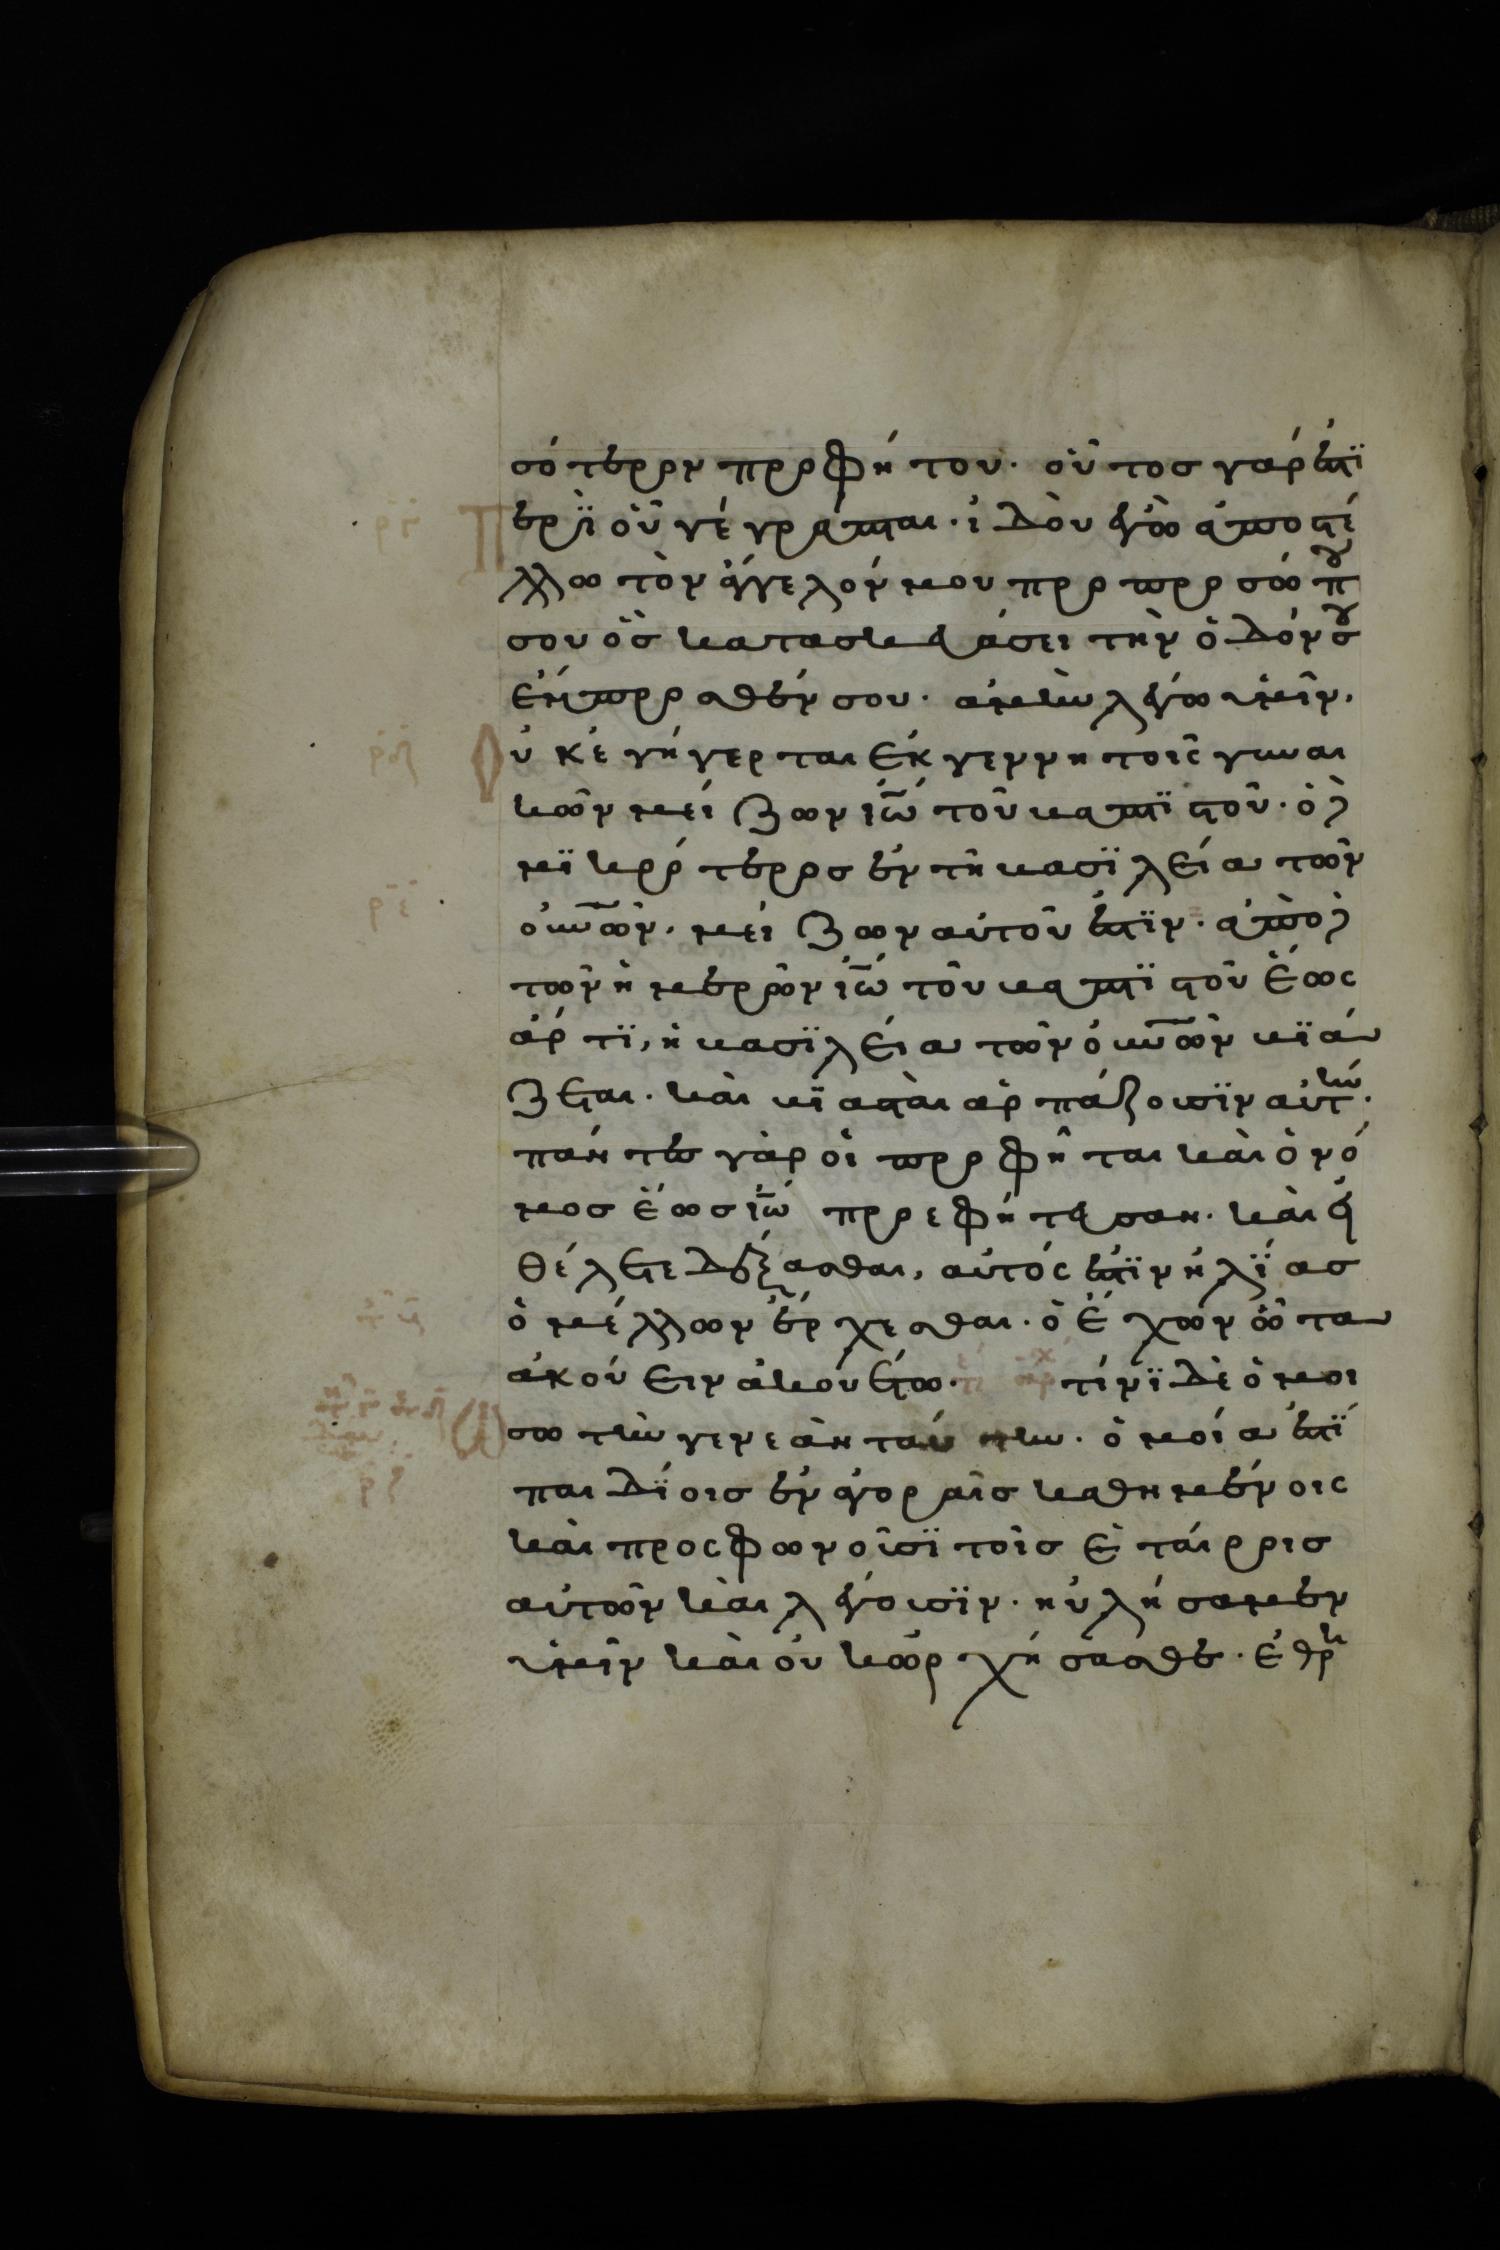 σότερον προφήτου. οὗτος γάρ ἐστϊ
Περϊ οὗ γέγραπται. ἰδοὺ ἐγὼ ἀποστέ
λλω τὸν ἄγγελόν μου προ προσώπου
σου ὃς κατασκευάσει τὴν ὁδόν σου
ἔμπροσθέν σου. ἀμὴν λέγω ὑμῖν.
Οὐκ ἐγήγερται ἐκ γεννητοῖς γυναι
κῶν μείζων ἰω̅ τοῦ βαπτϊστοῦ. ὁ δὲ
μϊκρότερος ἐν τῆ βασϊλεία τῶν
οὐν̅ῶν. μείζων αὐτοῦ ἐστϊν. ἀπὸ δὲ
τῶν ἡμερῶν ἰω̅ τοῦ βαπτϊστοῦ ἕως
ἄρτϊ, ἡ βασϊλεία τῶν οὐν̅ῶν βϊά
ζεται. καὶ βϊασταὶ ἁρπάζουσϊν αὐτήν.
πάντες γὰρ οἱ προφῆται καὶ ὁ νό
μος ἕως ἰω̅ προεφήτευσαν. καὶ εἰ
θέλετε δέξασθαι, αὐτός ἐστϊν ἠλΐας
ὁ μέλλων ἔρχεσθαι. ὁ ἔχων ὦτα
ἀκούειν ἀκουέτω. τίνϊ δὲ ὁμοι
ώσω τὴν γενεὰν ταύτην. ὁμοία ἐστϊ
παιδΐοις ἐν ἀγοραῖς καθημένοις
καὶ προςφωνοῦσϊ τοῖς ἑταίροις
αὐτῶν καὶ λέγουσϊν. ηὐλήσαμεν
ὑμῖν καὶ οὐκ ὠρχήσασθε. ἐθρη